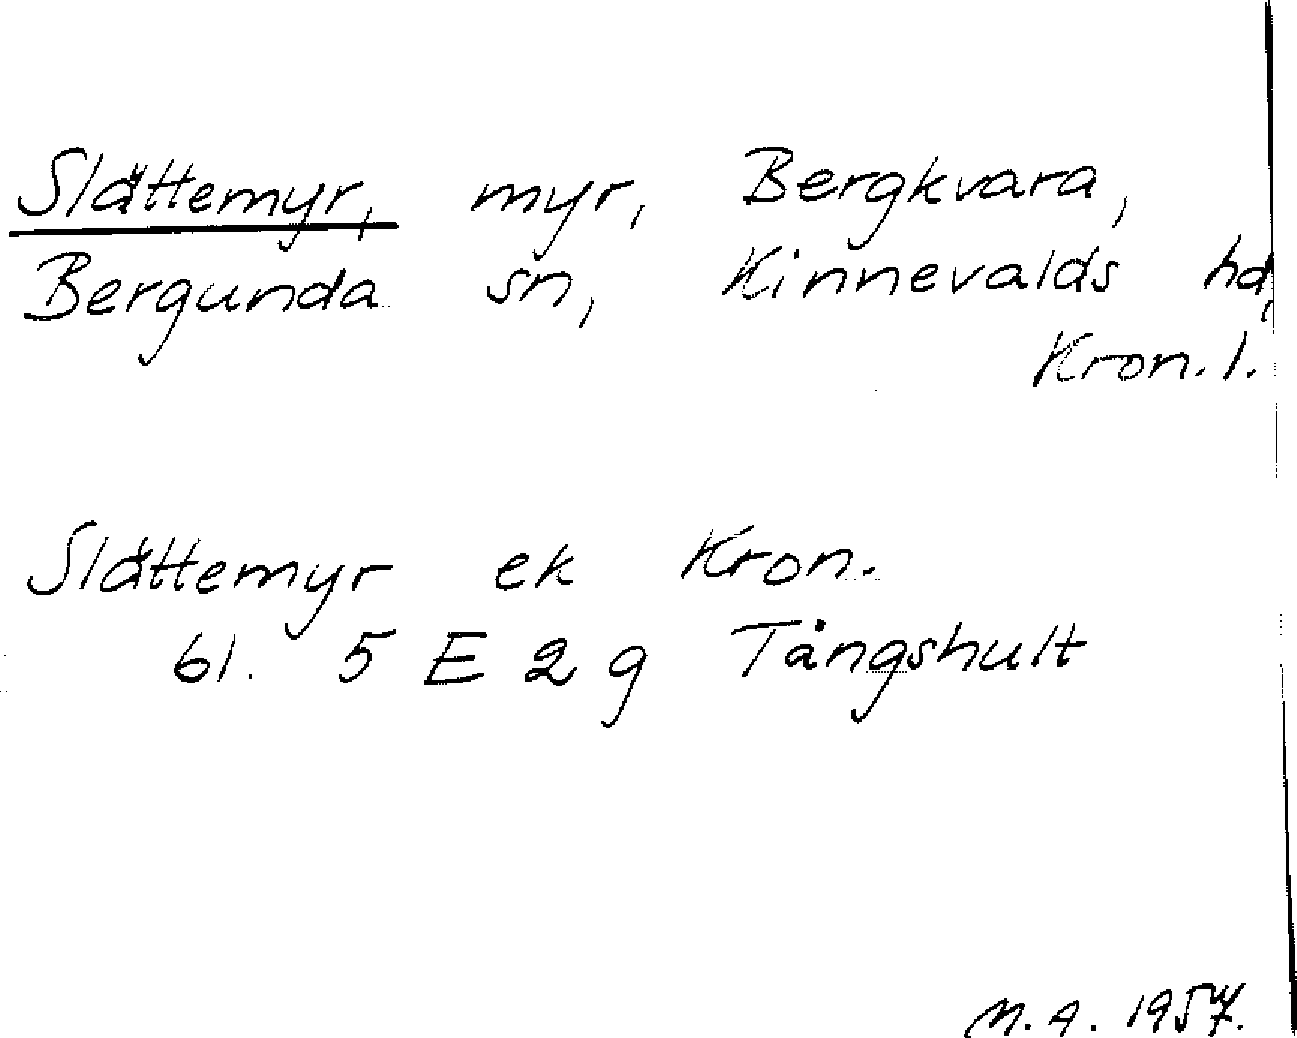 Slättemyr, myr, Bergkvara,
Bergunda sn, Kinnevalds hd,
Kron. l.
Slättemyr ek Kron.
bl. 5 E 2 g Tångshult
M.A. 1957.